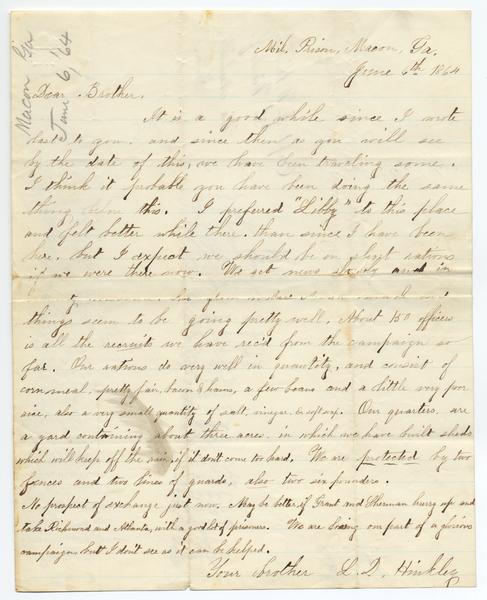 Macon Ga
June 6, '64
Mil. Prison, Macon, Ga.
June 6th 1864
Dear Brother,
It is a good while since I wrote
last to you, and since then as you will see
by the date of this, we have been traveling some.
I think it probable you have been doing the same
thing this. I preferred "Libby" to this place
and felt better while there, than since I have been
here, but I expect we should be on short rations
if we were there now. We get news and in
things seem to be going pretty well. About 150 officers
is all the recruits we have rec'd from the campaign so
far. Our rations do very well in quantity, and consist of
corn meal, pretty fair, bacon & hams, a few beans and a little very poor
rice, also a very small quantity of salt, vinegar & soft soap. Our quarters are
a yard containing about three acres, in which we have built sheds
which will keep off the rain, if it dont come too hard. We are protected by two
fences and two lines of guards, also two six pounders.
No prospect of exchange just now. May be better, if Grant and Sherman hurry up and
take Richmond and Atlanta, with a good lot of prisoners. We are losing our part of a glorious
campaign, but I don't see as it can be helped.
Your brother L. D. Hinkley